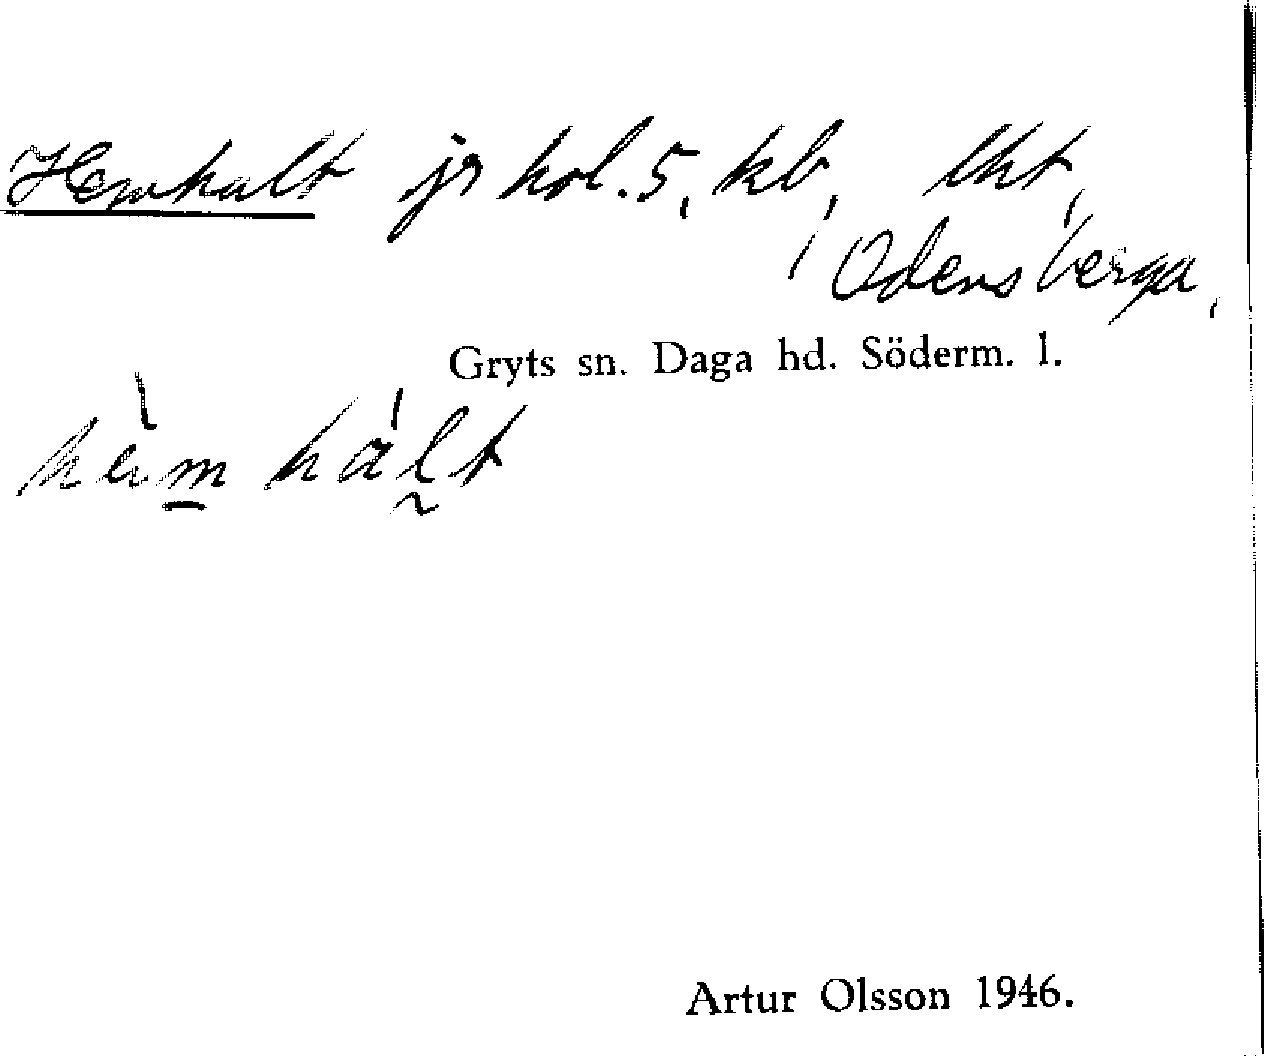 Hemhalt jr hol. 5, kb, lht,
Odensberga,
Gryts sn. Daga hd. Söderm. l.
hèm hált
Artur Olsson 1946.